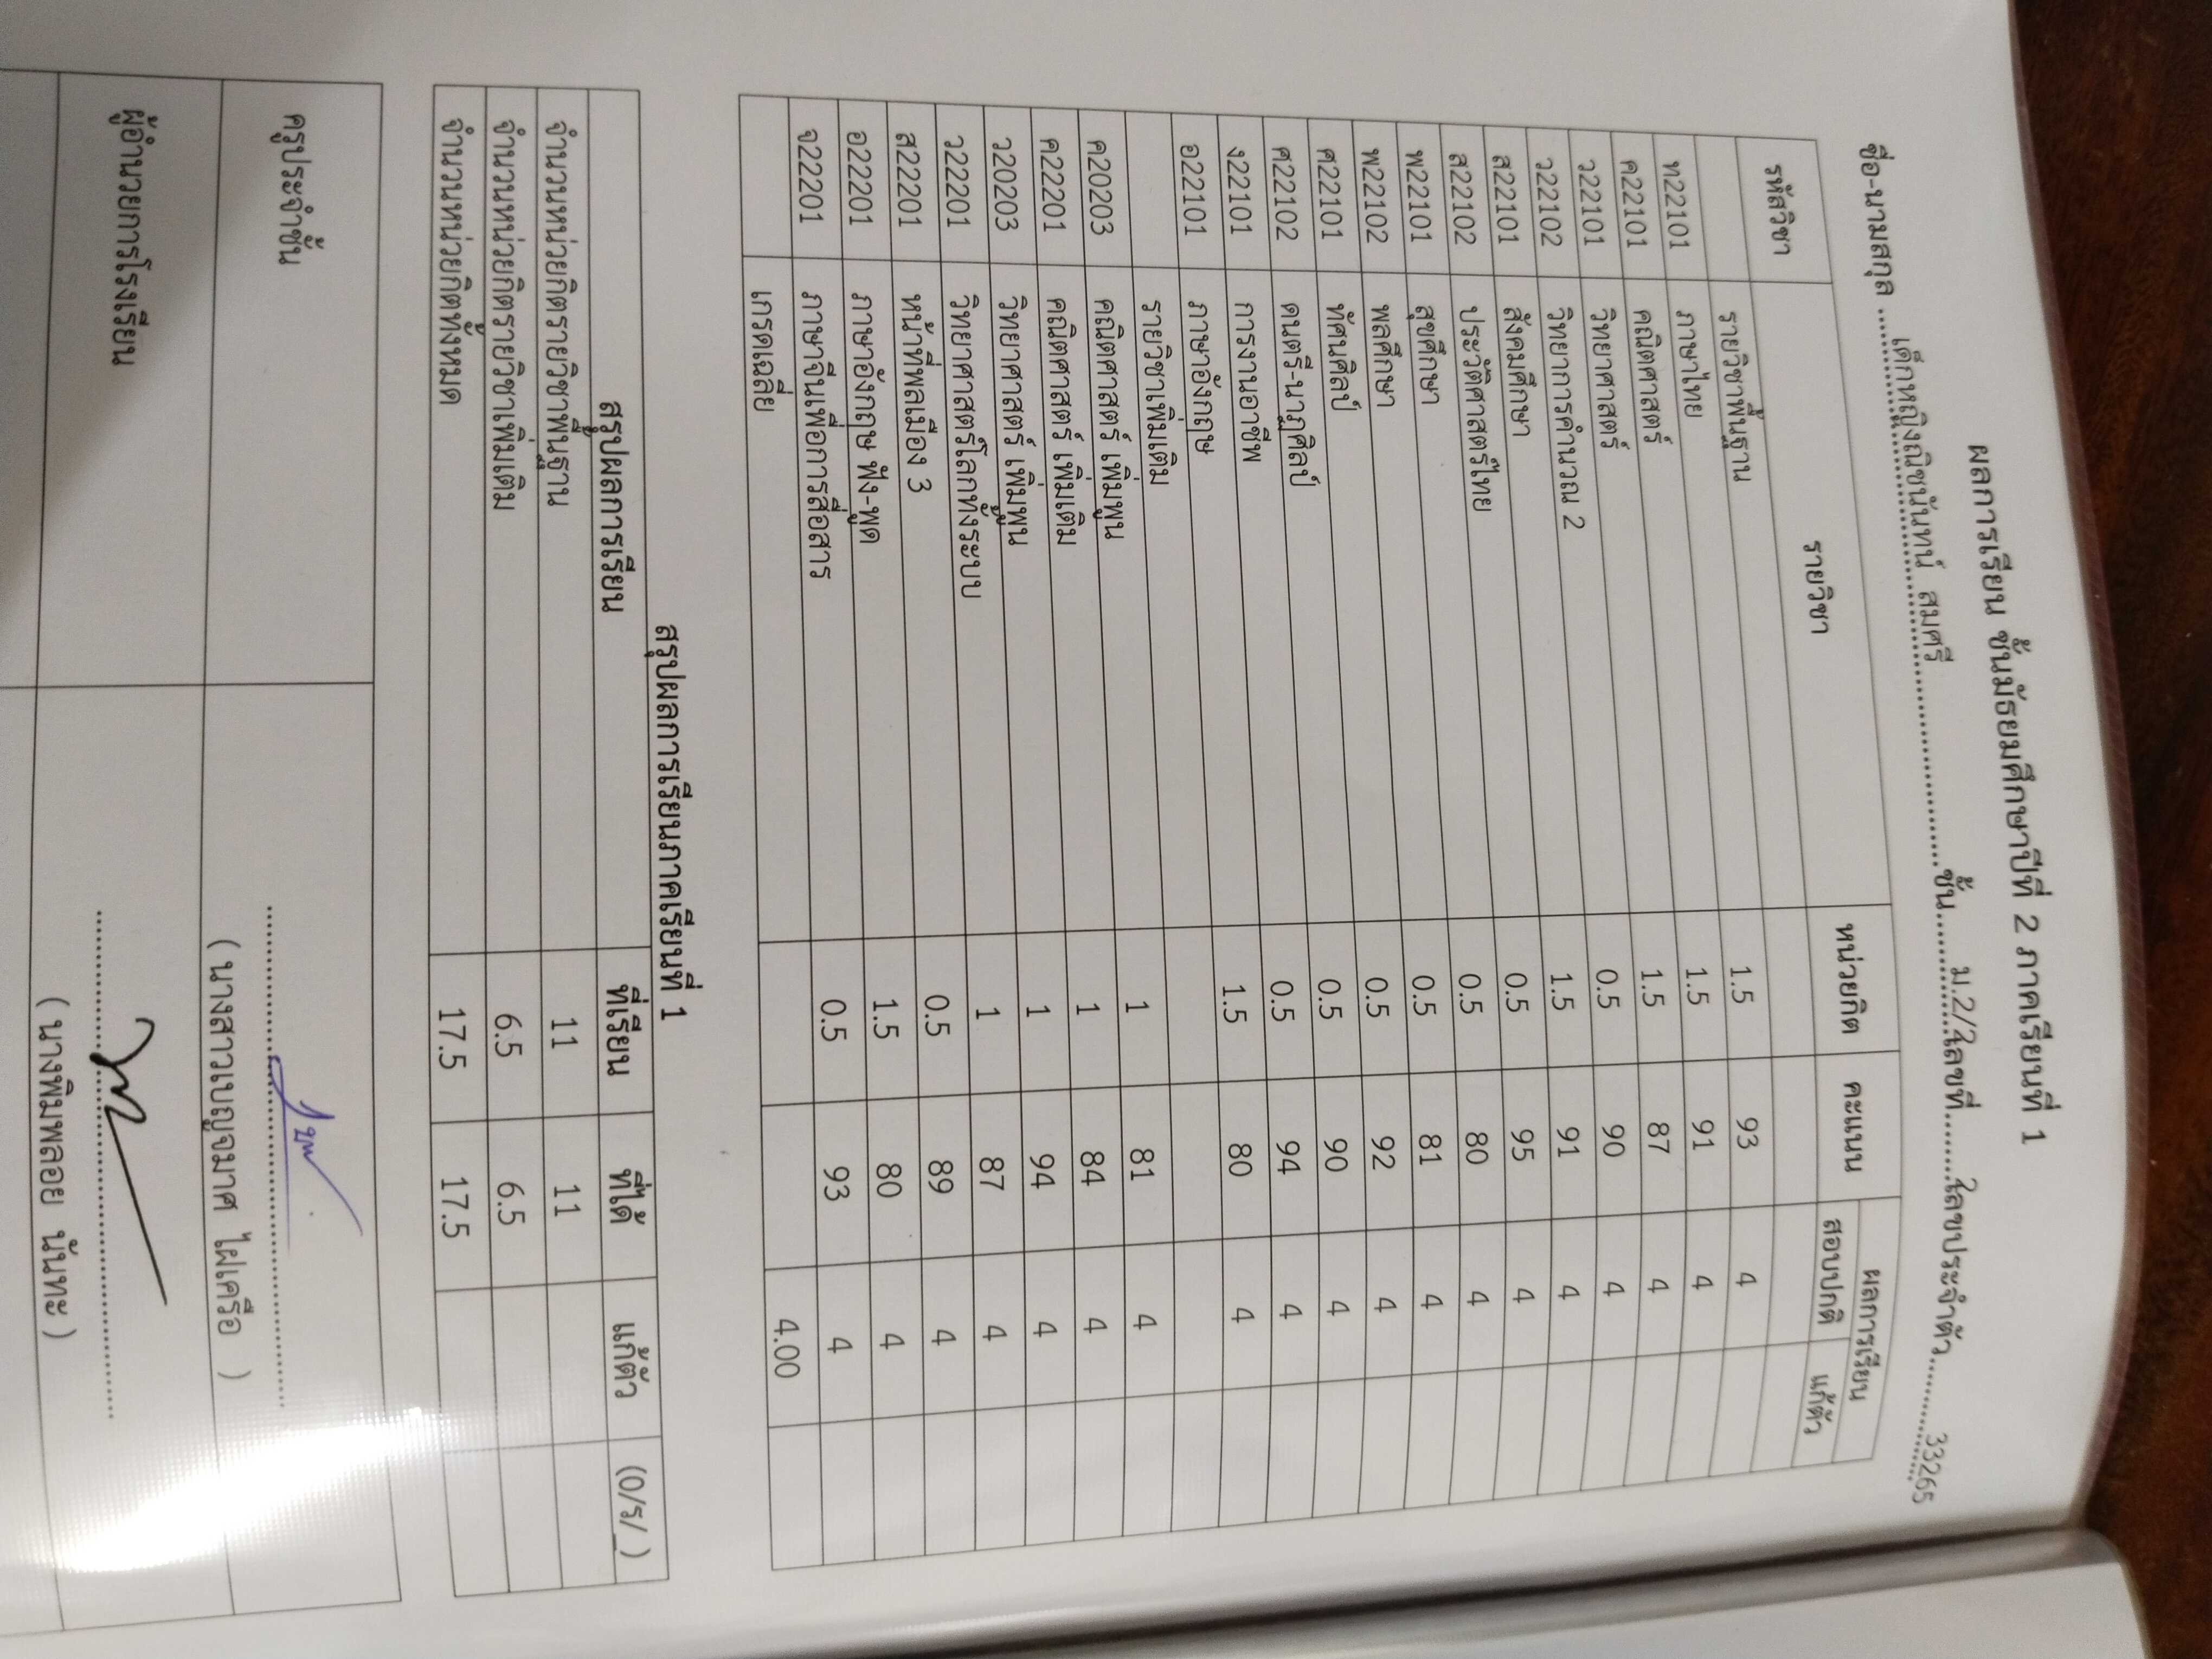 ผลการเรียน ชั้นมัธยมศึกษาปีที่ 2 ภาคเรียนที่ 1
ชื่อ-นามสกุล ........เด็กหญิงณิชนันทน์ สมศรี........ชั้น........ม.2/2เลขที่........2เลขประจำตัว........33265
รหัสวิชา รายวิชา หน่วยกิต คะแนน ผลการเรียน
สอบปกติ แก้ตัว
รายวิชาพื้นฐาน
ท22101 ภาษาไทย 1.5 93 4
ค22101 คณิตศาสตร์ 1.5 91 4
ว22101 วิทยาศาสตร์ 1.5 87 4
ว22102 วิทยาการคำนวณ 2 0.5 90 4
ส22101 สังคมศึกษา 1.5 91 4
ส22102 ประวัติศาสตร์ไทย 0.5 95 4
พ22101 สุขศึกษา 0.5 80 4
พ22102 พลศึกษา 0.5 81 4
ศ22101 ทัศนศิลป์ 0.5 92 4
ศ22102 ดนตรี-นาฏศิลป์ 0.5 90 4
ง22101 การงานอาชีพ 0.5 94 4
อ22101 ภาษาอังกฤษ 1.5 80 4
รายวิชาเพิ่มเติม
ค20203 คณิตศาสตร์ เพิ่มพูน 1 81 4
ค22201 คณิตศาสตร์ เพิ่มเติม 1 84 4
ว20203 วิทยาศาสตร์ เพิ่มพูน 1 94 4
ว22201 วิทยาศาสตร์โลกทั้งระบบ 1 87 4
ส22201 หน้าที่พลเมือง 3 0.5 89 4
อ22201 ภาษาอังกฤษ ฟัง-พูด 1.5 80 4
จ22201 ภาษาจีนเพื่อการสื่อสาร 0.5 93 4
เกรดเฉลี่ย 4.00
สรุปผลการเรียนภาคเรียนที่ 1
สรุปผลการเรียน ที่เรียน ที่ได้ แก้ตัว (0/ร/_)
จำนวนหน่วยกิตรายวิชาพื้นฐาน 11 11
จำนวนหน่วยกิตรายวิชาเพิ่มเติม 6.5 6.5
จำนวนหน่วยกิตทั้งหมด 17.5 17.5
ครูประจำชั้น
( นางสาวเบญจมาศ ไผ่เครือ )
ผู้อำนวยการโรงเรียน
( นางพิมพลอย นันทะ )